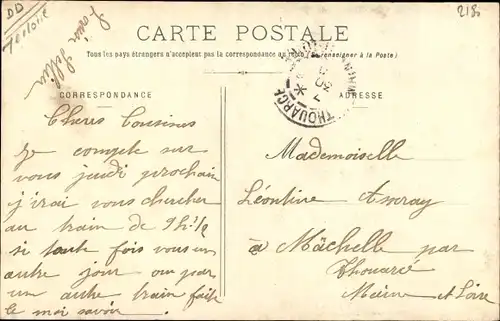 DD
218
CARTE POSTALE
Tous les pays étrangers n'acceptent pas la correspondance au recto (Se renseigner à la Poste)
THOUARCÉ
CORRESPONDANCE
ADRESSE
Chères Cousines
Je compte sur
vous jeudi prochain
j'irai vous chercher
au train de 9h 1/2
si toute fois vous un
autre jour ou par
un autre train faite
le moi savoir
Mademoiselle
Léontine
à Mâchelle par
Thouarcé
Maine et Loire